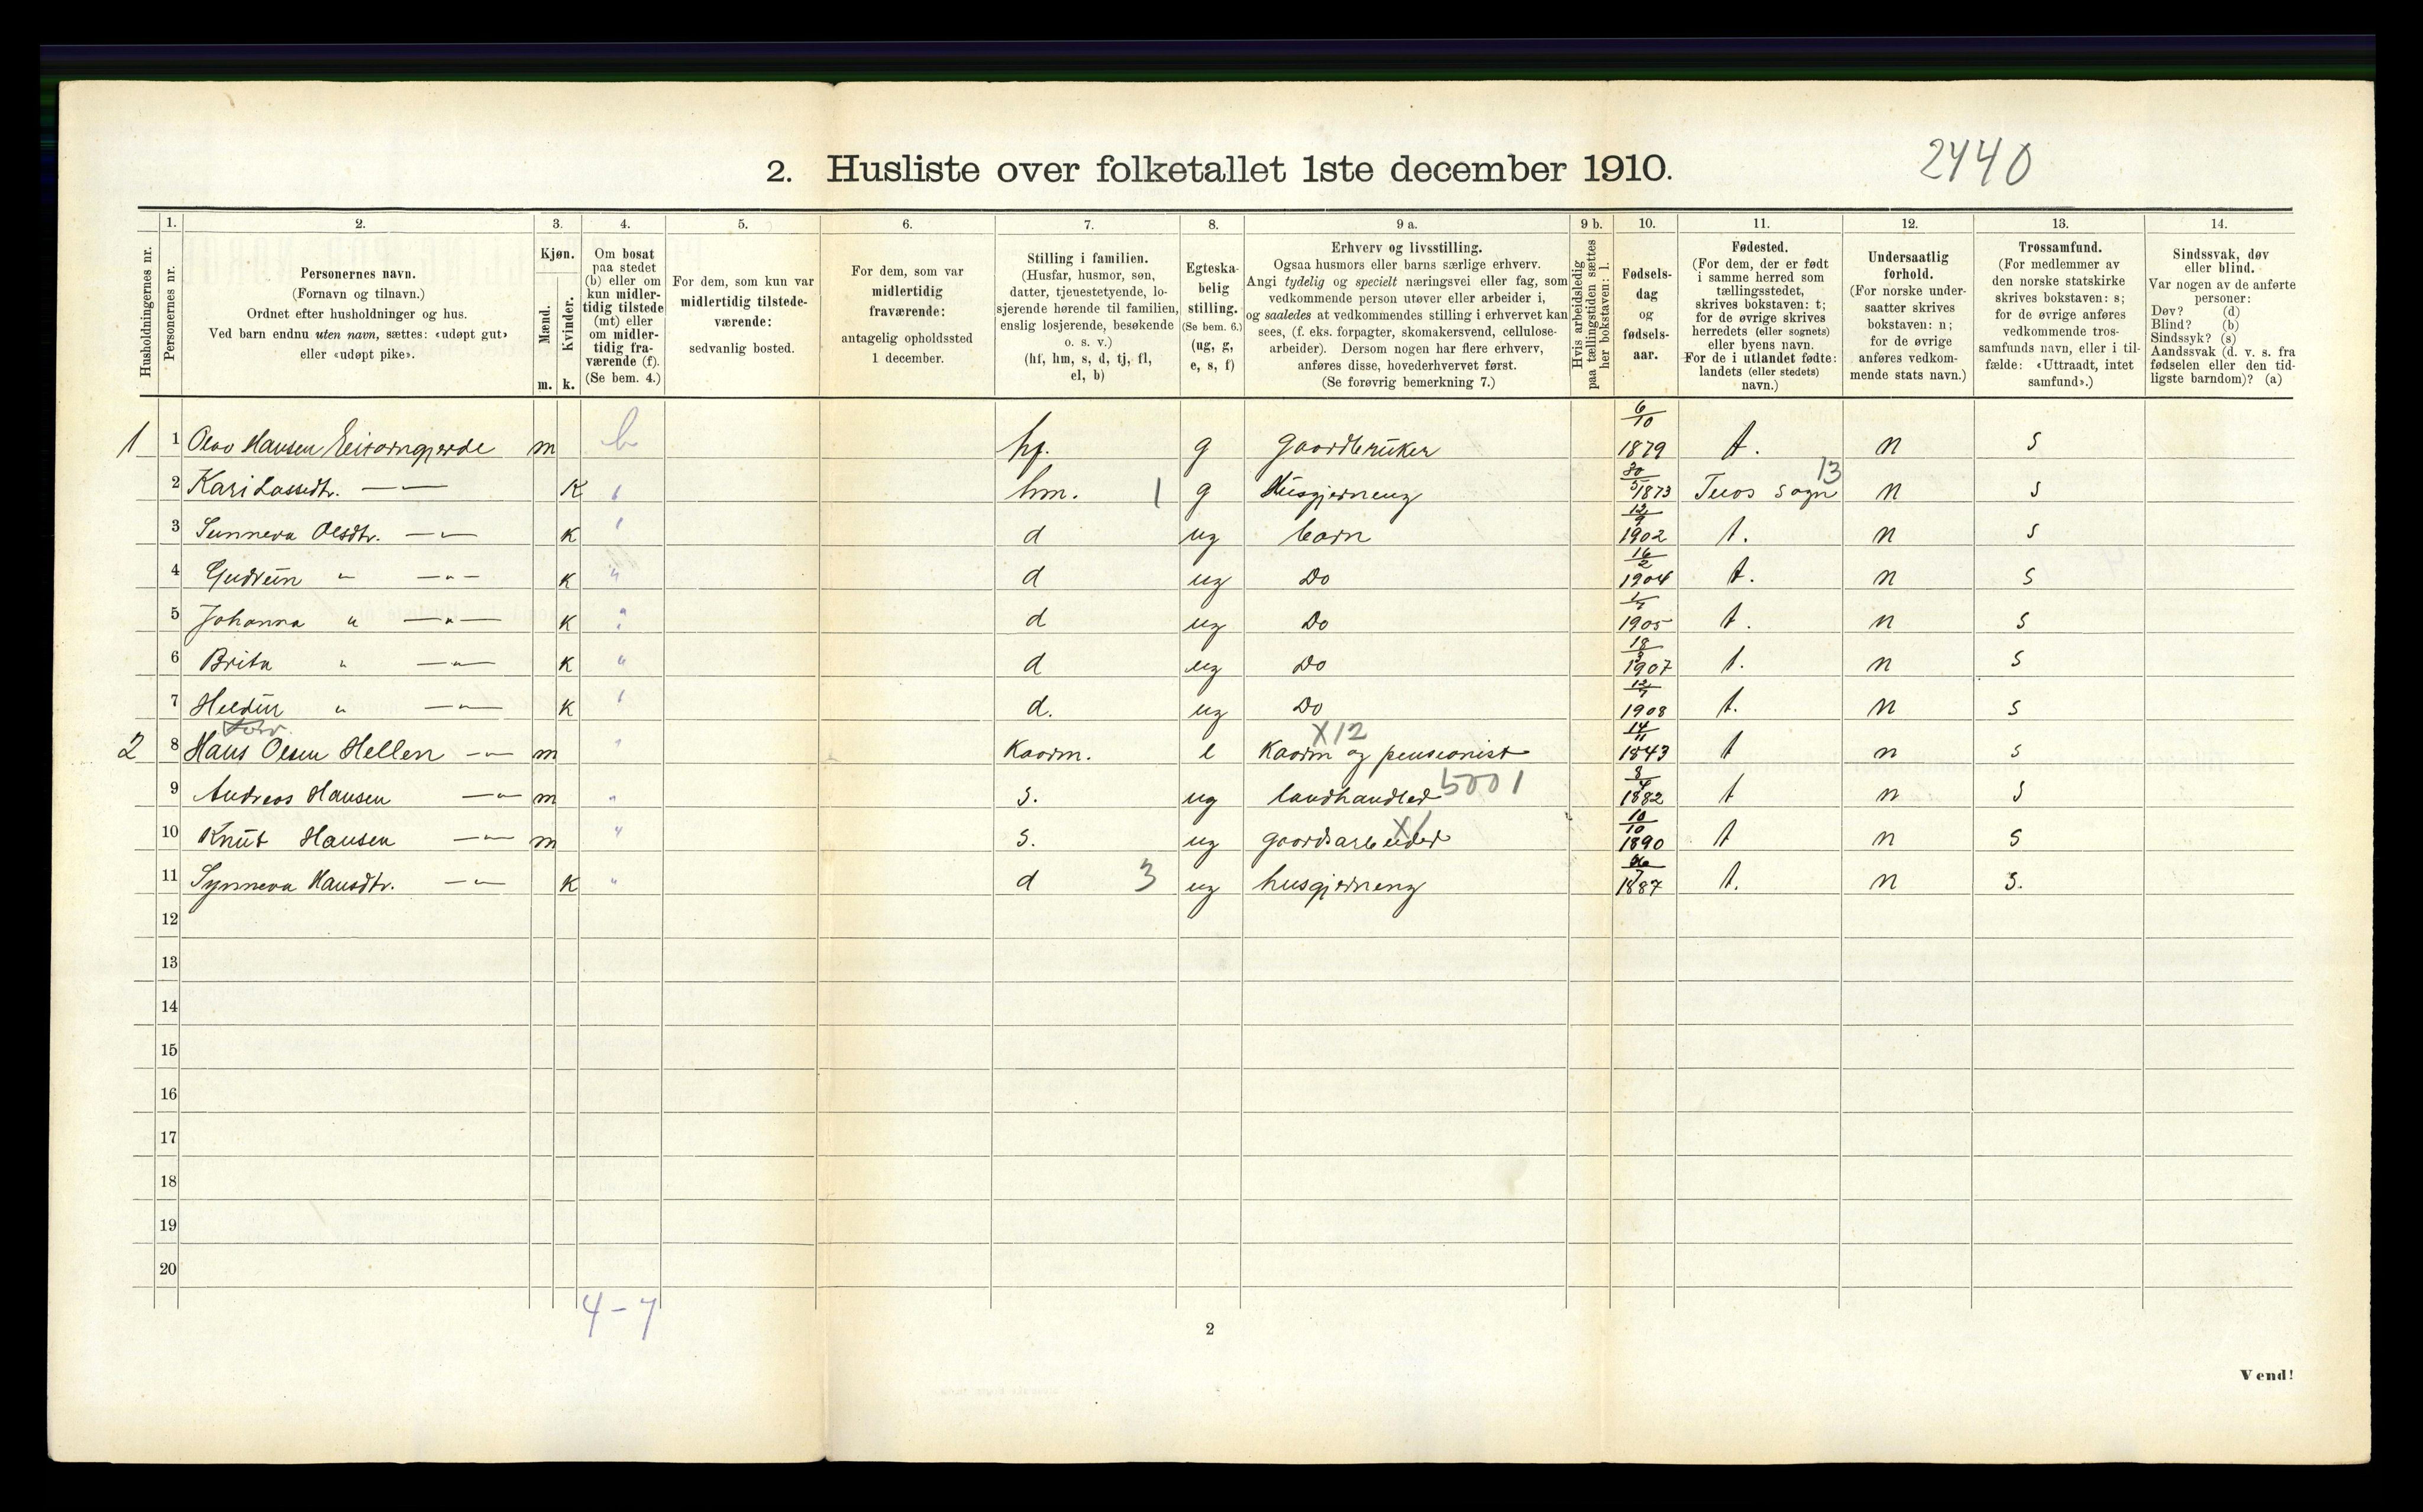 2. Husliste over folketallet 1ste december 1910.
2440
Husholdningernes nr.
1. Personernes nr.
2. Personernes navn.
(Fornavn og tilnavn.)
Ordnet efter husholdninger og hus.
Ved barn endnu uten navn, sættes: «udøpt gut»
eller «udøpt pike».
3. Kjøn.
Mænd. m.
Kvinder. k.
4. Om bosat
paa stedet
(b) eller om
kun midler-
tidig tilstede
(mt) eller
om midler-
tidig fra-
værende (f).
(Se bem. 4.)
5. For dem, som kun var
midlertidig tilstede-
værende:
sedvanlig bosted.
6. For dem, som var
midlertidig
fraværende:
antagelig opholdssted
1 december.
7. Stilling i familien.
(Husfar, husmor, søn,
datter, tjenestetyende, lo-
sjerende hørende til familien,
enslig losjerende, besøkende
o. s. v.)
(hf, hm, s, d, tj, fl,
el, b)
8. Egteska-
belig
stilling.
(Se bem. 6.)
(ug, g,
e, s, f)
9 a. Erhverv og livsstilling.
Ogsaa husmors eller barns særlige erhverv.
Angi tydelig og specielt næringsvei eller fag, som
vedkommende person utøver eller arbeider i,
og saaledes at vedkommendes stilling i erhvervet kan
sees, (f. eks. forpagter, skomakersvend, cellulose-
arbeider). Dersom nogen har flere erhverv,
anføres disse, hovederhvervet først.
(Se forøvrig bemerkning 7.)
9 b. Hvis arbeidsledig
paa tællingstiden sættes
her bokstaven: l.
10. Fødsels-
dag
og
fødsels-
aar.
11. Fødested.
(For dem, der er født
i samme herred som
tællingsstedet,
skrives bokstaven: t;
for de øvrige skrives
herredets (eller sognets)
eller byens navn.
For de i utlandet fødte:
landets (eller stedets)
navn.)
12. Undersaatlig
forhold.
(For norske under-
saatter skrives
bokstaven: n;
for de øvrige
anføres vedkom-
mende stats navn.)
13. Trossamfund.
(For medlemmer av
den norske statskirke
skrives bokstaven: s;
for de øvrige anføres
vedkommende tros-
samfunds navn, eller i til-
fælde: «Uttraadt, intet
samfund».)
14. Sindssvak, døv
eller blind.
Var nogen av de anførte
personer:
Døv? (d)
Blind? (b)
Sindssyk? (s)
Aandssvak (d. v. s. fra
fødselen eller den tid-
ligste barndom)? (a)
1 1 Olav Hansen m b hf. g gaardbruker 6/10 1879 t. n s
2 Kari Lassedtr. —"— K hm. 1 g Husgjerning 30/5 1873 sogn 13 n s
3 Sunneva Olsdtr. —"— K d ug barn 12/9 1902 t. n s
4 Gudrun " —"— K " d ug Do 16/2 1904 t. n s
5 Johanna " —"— K " d ug Do 1905 t. n s
6 Brita " —"— K " d ug Do 18/3 1907 t. n s
7 " —"— K d. ug Do 1908 t. n s
2 8 Hans Olsen Hellen —"— m " Kaarm. e Kaarm og pensionist X12 14/11 1843 t n s
9 Andreas Hansen —"— m " s. ug landhandler 5001 8/4 1882 t n s
10 Knut Hansen —"— m " s. ug gaardsarbeider X1 10/10 1890 t n s
11 Synneva Hansdtr. —"— K " d 3 ug husgjerning 1887 t. n s.
12
13
14
15
16
17
18
19
20
4-7
2
Vend!